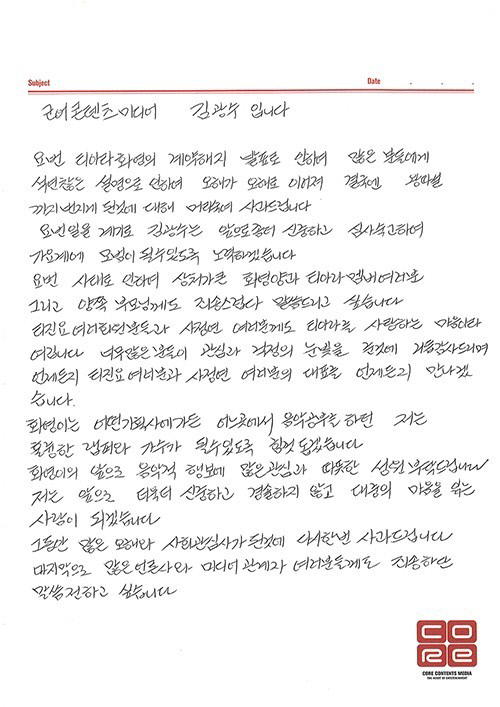 Subject
Date . . .
코어콘텐츠미디어 김광수 입니다
요번 티아라 화영의 계약해지 발표로 인하여 많은 분들에게
석연찮은 설명으로 인하여 오해가 오해로 이어져 결국엔 왕따설
까지 번지게 된것에 대해 머리숙여 사과드립니다
요번일을 계기로 김광수는 앞으로좀더 신중하고 심사숙고하여
가요계에 모범이 될수있도록 노력하겠습니다
요번 사태로 인하여 상처가큰 화영양과 티아라 멤버여러분
그리고 양쪽 부모님께도 죄송스럽다 말씀드리고 싶습니다
티진요 여러회원분들과 사정연 여러분께도 티아라를 사랑하는 마음이라
여깁니다 너무많은분들이 관심과 걱정의 눈빛을 준것에 거듭감사드리며
언제든지 티진요 여러분과 사정연 여러분의 대표를 언제든지 만나겠
습니다.
화영이는 어떤기획사에가든 어느곳에서 음악공부를 하던 저는
훌륭한 랩퍼와 가수가 될수있도록 힘껏 돕겠습니다
화영이의 앞으로 음악적 행보에 많은관심과 따뜻한 성원 부탁드립니다
저는 앞으로 더욱더 신중하고 경솔하지 않고 대중의 마음을 읽는
사람이 되겠습니다
그동안 많은 오해와 사회관심사가 된것에 다시한번 사과드립니다
마지막으로 많은언론사와 미디어 관계자 여러분들께도 죄송하단
말씀전하고 싶습니다
CORE
CORE CONTENTS MEDIA
THE HEART OF ENTERTAINMENT